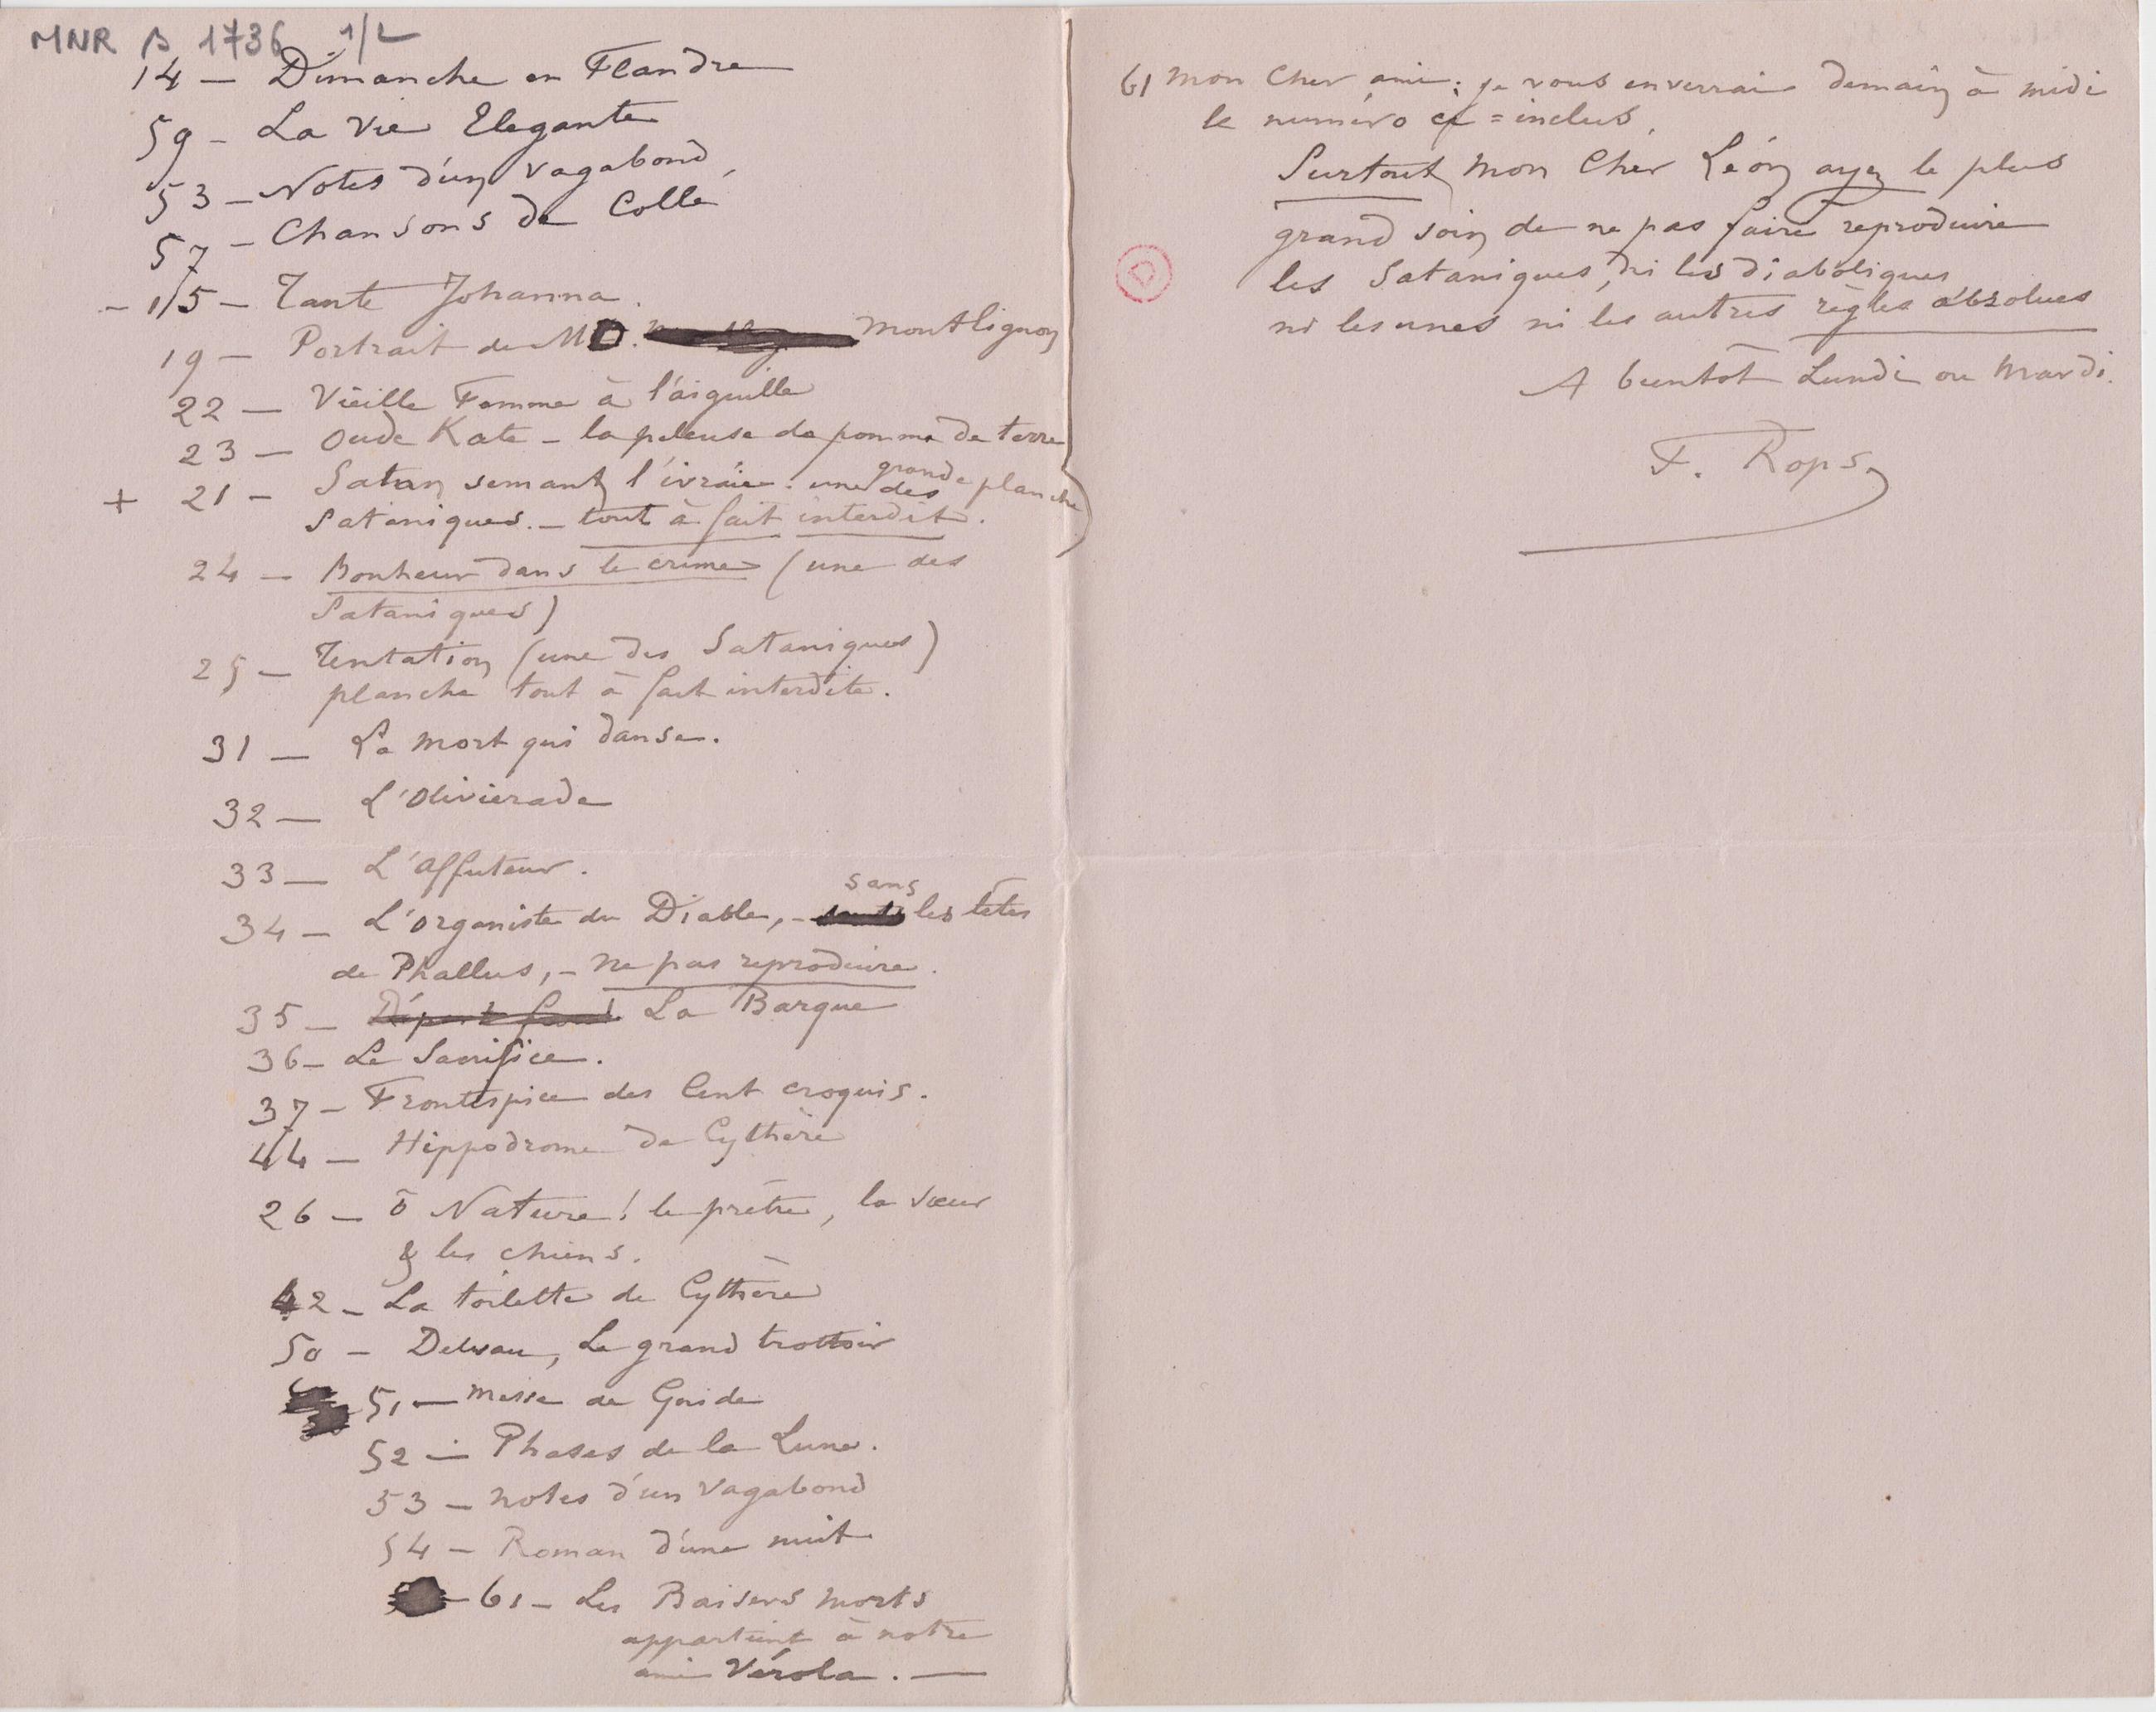 MNR B 1736 1/2
14 — Dimanche en Flandre
59 - La Vie Elegante
53 - Notes d'un vagabond,
57 - Chansons de Collé
- 15 - Tante Johanna.
19 — Portrait de MD. Montlignon
22 — Vieille Femme à l'aiguille
23 — Oude Kate - la peleuse de pomme de terre
+ 21 - Satan semant l'ivraie : une des grande planche
Sataniques. - tout à fait interdit.
24 — Bonheur dans le crime (une des
Sataniques)
25 — Tentation (une des Sataniques)
planche tout à fait interdite.
31 — La Mort qui danse.
32 — L'Olivierade
33 — L'Affuteur.
34 — L'organiste du Diable, - sans les têtes
de Phallus, - ne pas reproduire.
35 — La Barque
36 - Le Sacrifice.
37 - Frontispice des Cent croquis.
44 — Hippodrome de Cythère
26 — ô Nature! le prêtre, la sœur
& les chiens.
42 - La toilette de Cythère
50 - Delvau, Le grand trottoir
51 — Messe de Gnide
52 — Phases de la Lune.
53 — Notes d'un vagabond
54 — Roman d'une nuit
- 61 - Les Baisers morts
appartient à notre
ami Vérola. —
61 Mon Cher ami : je vous enverrai demain à midi
le numéro ci=inclus.
Surtout mon Cher Léon ayez le plus
grand soin de ne pas faire reproduire
les Sataniques, ni les diaboliques
ni les unes ni les autres règles absolues
A bientôt Lundi ou Mardi.
F. Rops
D